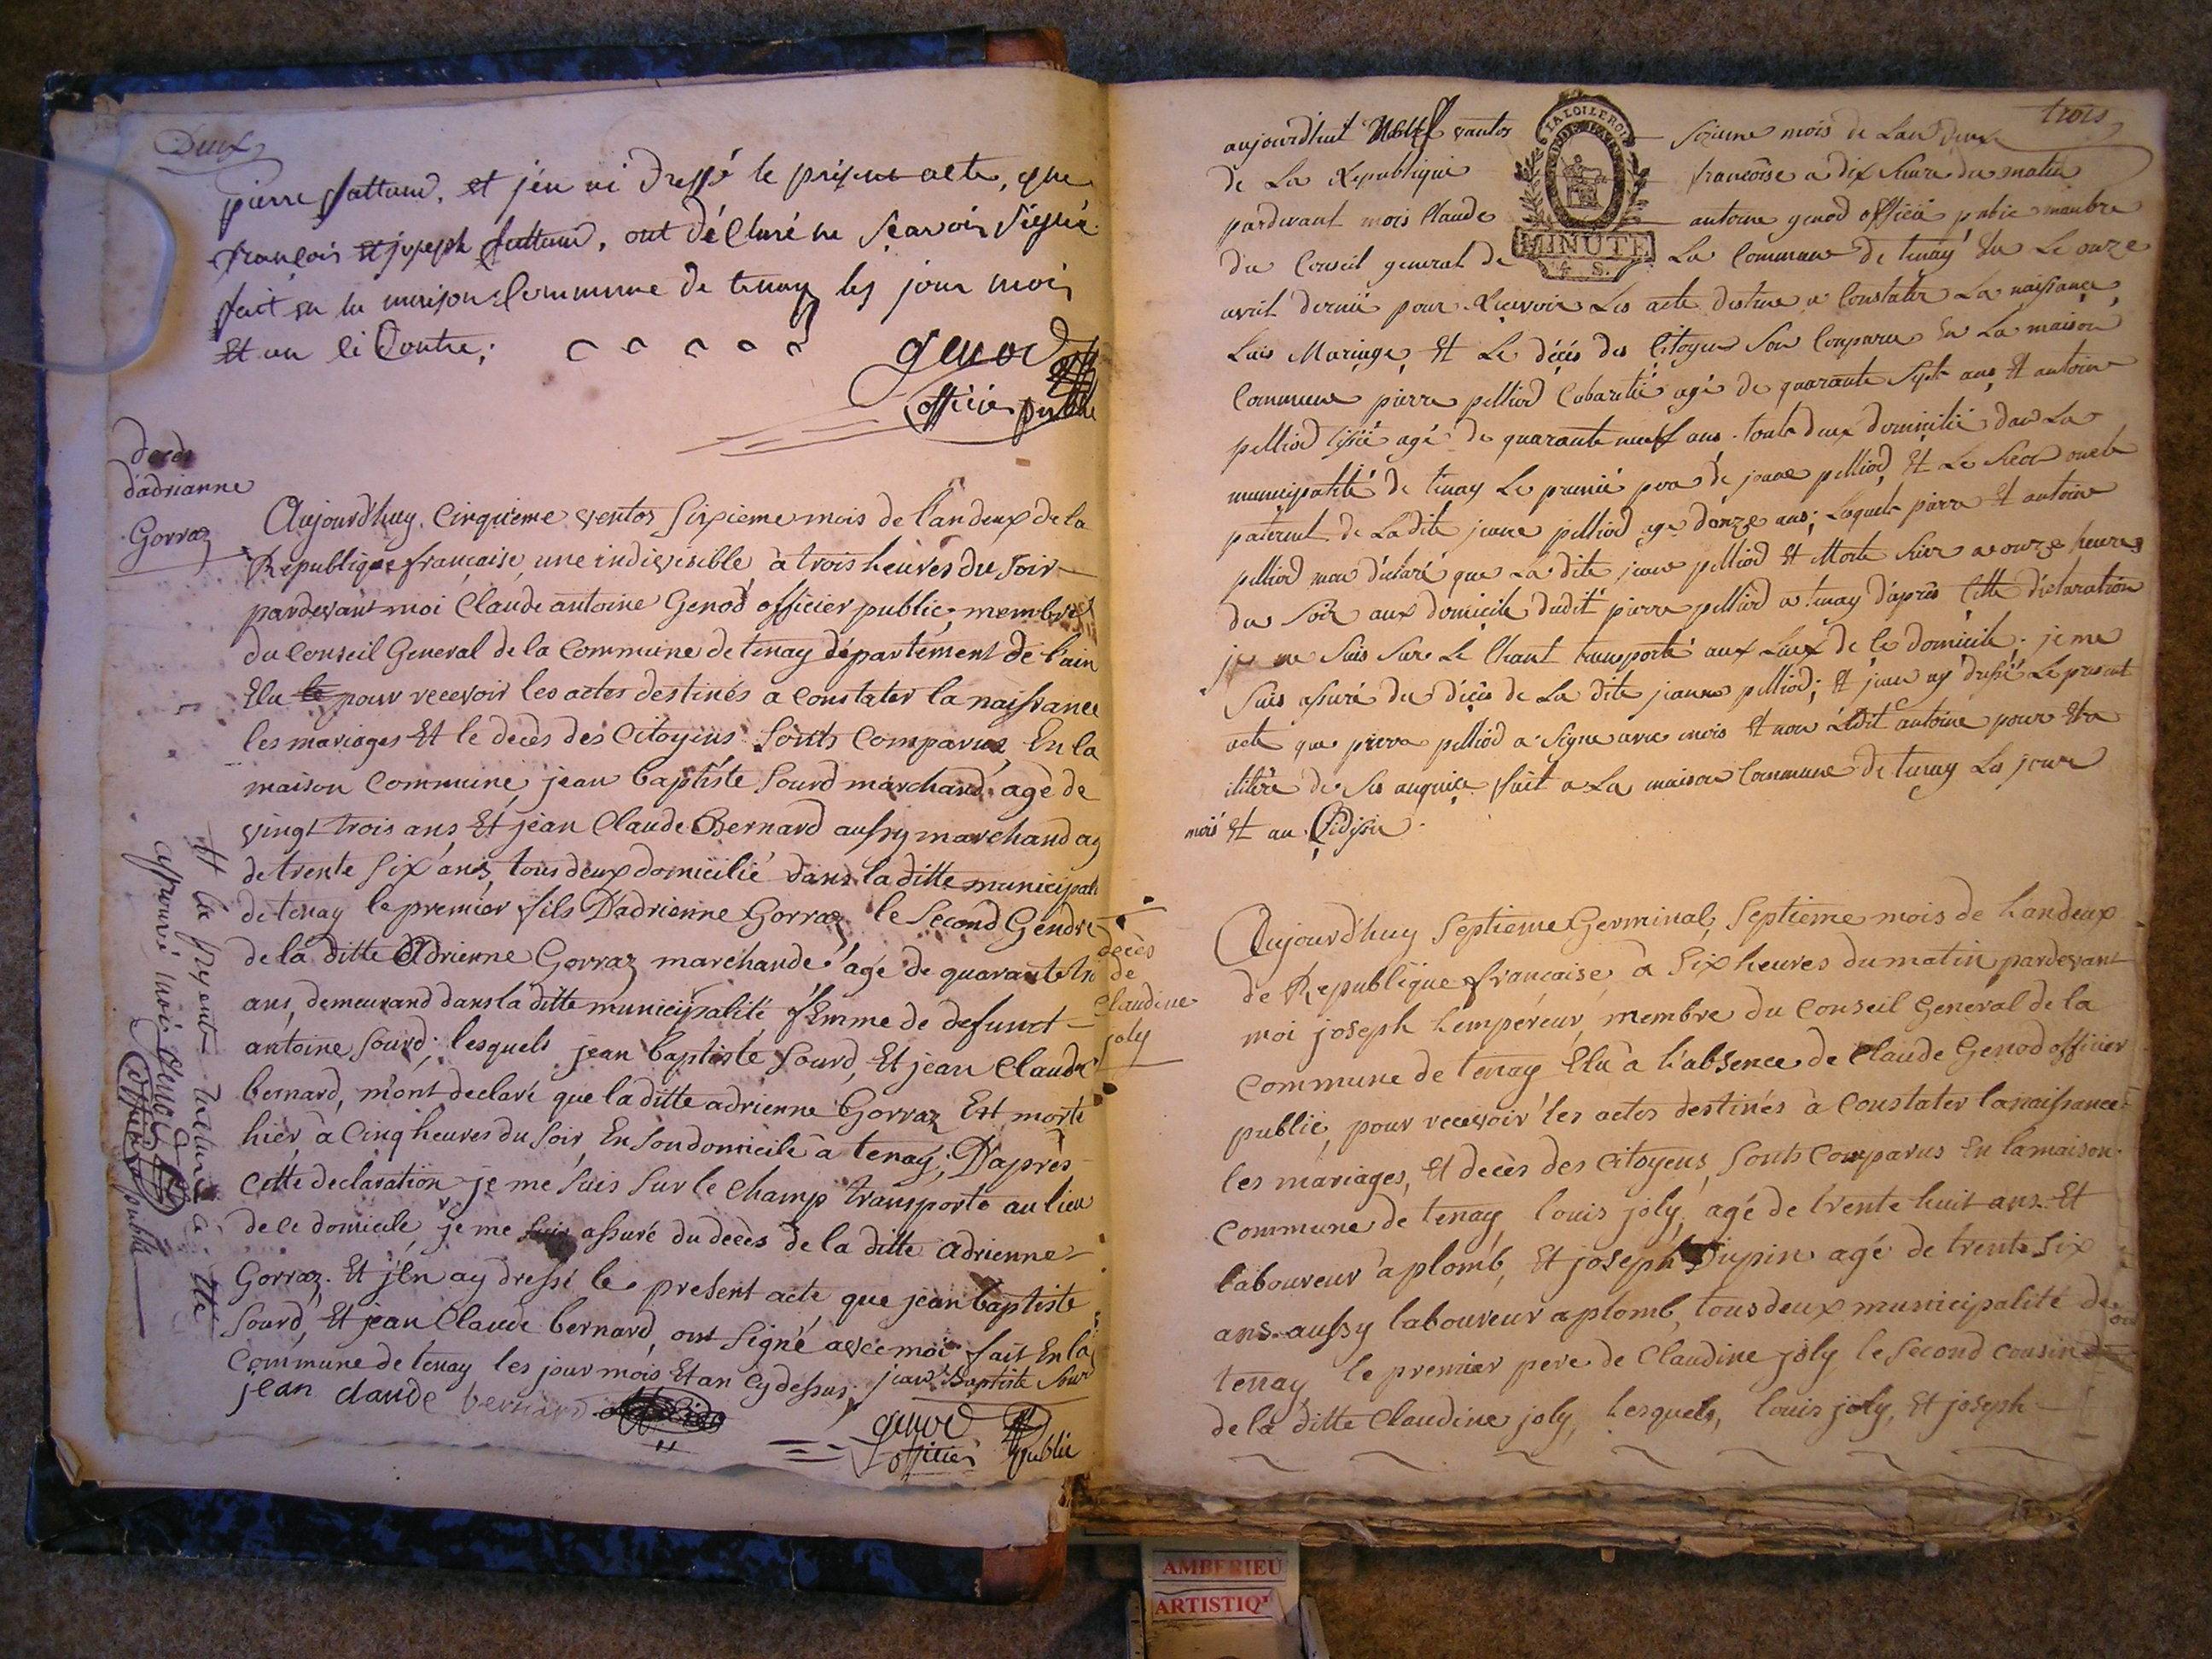 Deux
pierre fattend. et jén ai dressé le présent acte, que
françois et joseph fattend, ont déClaré ne Scavoir Signié
fait en la maison Commune de tenay les jour mois
Et an ci Contre;
genod
officier public
deces
d'adrianne
Gorraz
Aujourd'huy. Cinquieme ventos Sixieme mois de l'an deux de la
Republique française, une indivisible à trois heures du Soir
pardevant moi Claude antoine Genod officier public, membre
du Conseil General de la Commune de tenay département de l'ain
Elu le pour recevoir les actes destinés a constater la naissance
les mariages Et le decès des Citoyens Sonts Comparus, En la
maison Commune, jean baptiste Sourd marchand, agé de
vingt trois ans, Et jean Claude Bernard aussy marchand ag
de trente Six ans, tous deux domicilié dans la ditte municipali
de tenay le premier fils D'adrienne Gorraz le Second Gendre
de la ditte Adrienne Gorraz marchande agé de quarante tr
ans, demeurand dans la ditte municipalité fEmme de defunct
antoine Sourd; lesquels jean baptiste Sourd, Et jean Claude
bernard, m'ont declaré que la ditte adrienne Gorraz Est morte
hier, à Cinq heures du Soir, En Son domicile à tenay; D'après
Cette declaration je me Suis Sur le Champ transporté au lieu
de ce domicile, je me Suis assuré du decès de la ditte Adrienne
Gorraz. Et j'En ay dressé le present acte que jean baptiste
Sourd, Et jean Claude bernard, ont Signé avec moi fait En la
Commune de tenay les jour mois Et an Cy dessus. jean Baptiste Sourd
jean claude bernard
genod
officier public
et le present
aprouvé moi genod
officier public
trois
aujourdhuit Neuf vantos Sixieme mois de Lan deux
de La Republique francoise a dix heure du matin
pardevant mois Claude antoine genod officié public manbre
du Conseil general de La Commune de tenay Elu Le onze
LA LOI LE ROI
MINUTE
4 S.
avril dernié pour Recevoir Les acte destine a Constater La naissance,
Lais Mariage, Et Le décés des Citoyen Son Comparu En La maison
Commune pierre pelliod Cabaretié agé de quarante Sept ans, Et antoine
pelliod tisié agé de quarante neuf ans. tout deux domicilié dan La
municipalité de tenay Le premié pere de jeane pelliod, Et Le Second oncle
paternel de Ladite jeane pelliod age donze ans; Laquels pierre Et antoine
pelliod mon déclaré que La dite jeane pelliod Et Morte hier a onze heures
du Soir aux domicile dudit pierre pelliod a tenay dapres Cette déclaration
je me Suis Sur Le Chant transporté aux Lieux de Ce domicile; je me
Suis assuré du décès de La dite jeanne pelliod; Et j'ean ay dressé Le present
acte que pierre pelliod a Signe avec mois Et non Ledit antoine pour Etre
ilitéré de Ses anquis fait a La maison Commune de tenay Les jour
mois Et an Cidisu
decès
de
Claudine
joly
Aujourd'huy Septieme Germinal, Septieme mois de L'an deux
de Republique française, à Six heures du matin pardevant
moi joseph L'empéreur, membre du Conseil Genéral de la
Commune de tenay Elu à L'absence de Claude Genod officier
public, pour recevoir les actes destinés à Constater la naissance
les mariages, Et decès des Citoyens, Sonts Comparus En la maison
Commune de tenay, louis joly, agé de trente huit ans Et
laboureur à plomb, Et joseph Dupin agé de trente Six
ans aussy laboureur a plomb, tous deux municipalité de
tenay, le premier pere de Claudine joly le Second Cousin
de la ditte Claudine joly, Lesquels, louis joly, Et joseph
AMBERIEU
ARTISTIQ'